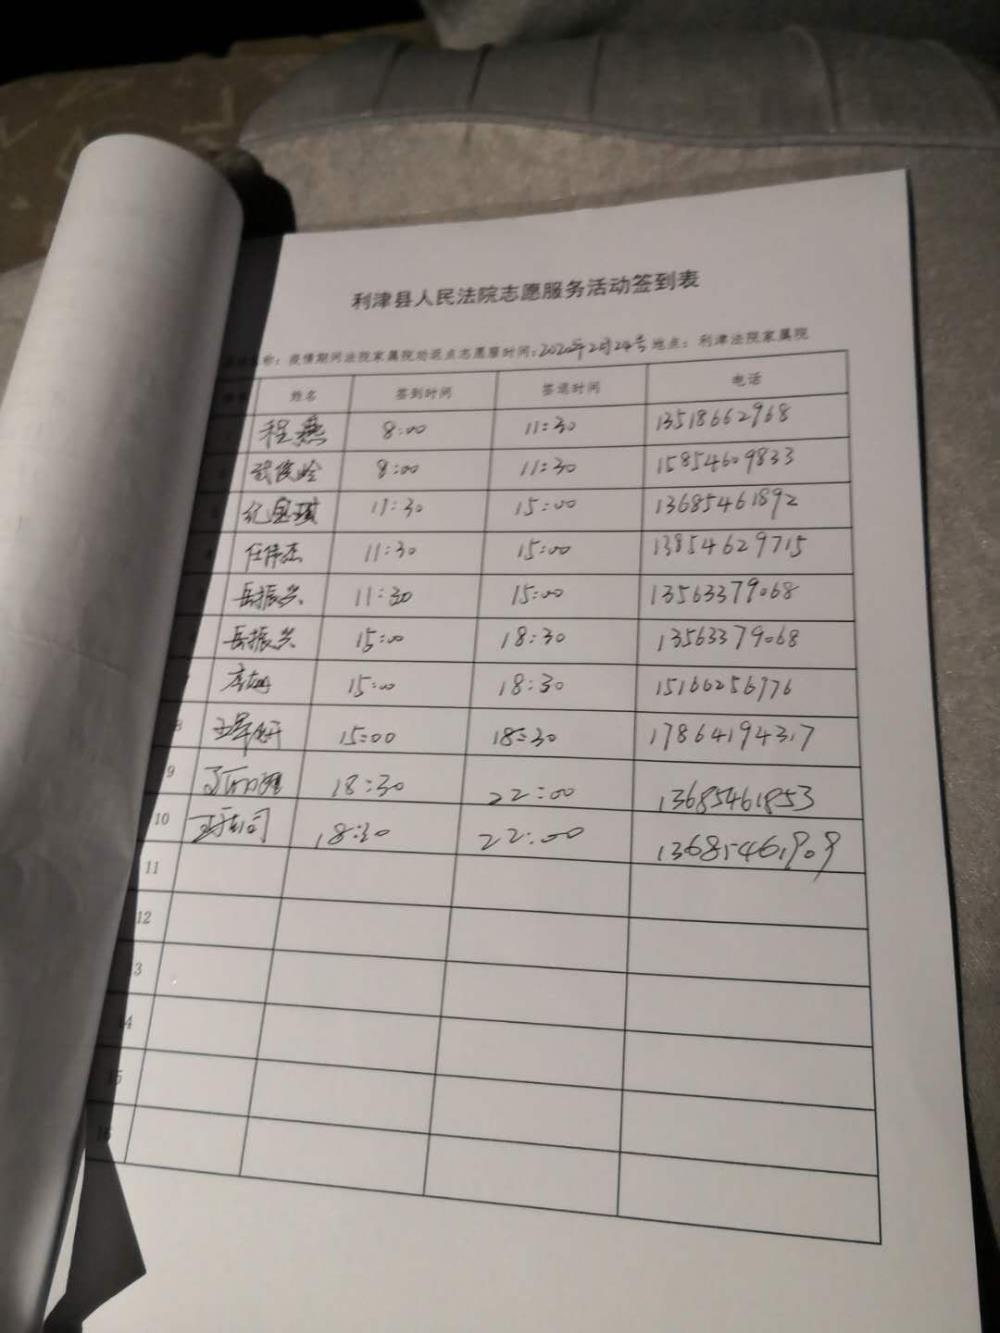 利津县人民法院志愿服务活动签到表
称：疫情期间法院家属院劝返点志愿服时间：2020年2月24号 地点：利津法院家属院
姓名 签到时间 签退时间 电话
程燕 8:00 11:30 13518662968
8:00 11:30 15854609833
11:30 15:00 13685461892
任伟杰 11:30 15:00 13854629715
岳振兴 11:30 15:00 13563379068
岳振兴 15:00 18:30 13563379068
15:00 18:30
8 15:00 18:30 17864194317
9 18:30 22:00 13685461853
10 18:30 22:00 13685461909
11
12
13
14
15
16